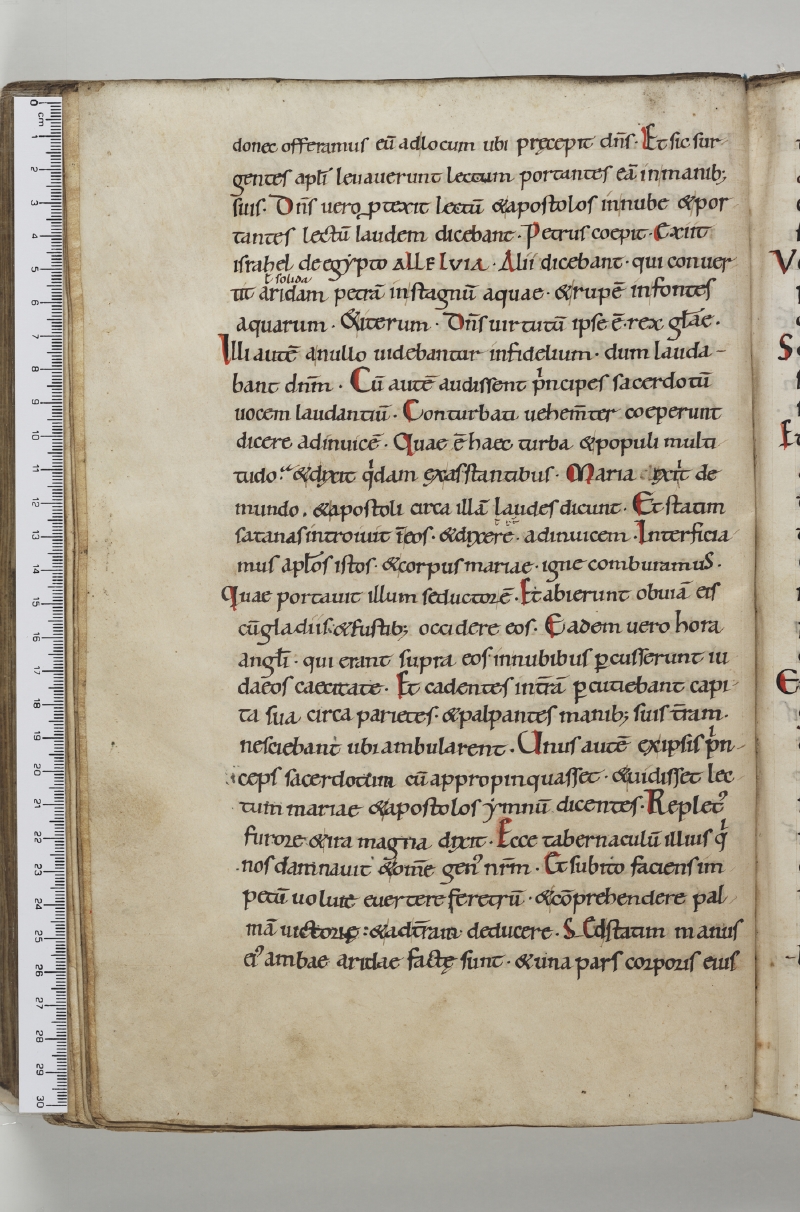 donec offeramus eū adlocum ubi pręcepit dn̄s· Et sic sur
gentes apłi leuauerunt lectum portantes eā inmanib;
suis· Dn̄s uero ꝓtexit lectū &apostolos innube &por
tantes lectū laudem dicebant· Petrus coepit· Exiit
israhel deegẏpto ALLELVIA· Alii dicebant· qui conuer
ł solida
tit aridam petrā instagnū aquae· &rupē infontes
aquarum· &iterum· Dn̄s uirtutū ipse ē· rex głae·
Illi autē anullo uidebantur infidelium· dum lauda-
bant dnm̄· Cū autē audissent pncipes sacerdotū
uocem laudantiū· Conturbati uehem̄ter coeperunt
dicere adinuicē· Quae ē haec turba &populi multi
tudo· &dixit qdam exasstantibus· Maria exiit de
mundo, &apostoli circa illā laudes dicunt· Et statim
satanas introiuit īeos· &dixerē· adinuicem· Interficia
mus apłos istos· &corpus mariae· igne comburamuS·
Quae portauit illum seductorē· Et abierunt obuiā eis
cūgladiis·&fustib; occidere eos· Eadem uero hora
angłi· qui erant supra eos innubibus ꝑcusserunt iu
daeos caecitate· Et cadentes int̄rā ꝑcutiebant capi
ta sua circa parietes· &palpantes manib; suis t̄ram·
nesciebant ubi ambularent· Unus autē exipsis pn
ceps sacerdotum cū appropinquasset· &uidisset lec
tum mariae &apostolos ẏmnū dicentes· Replet᾽
furore &ira magna dixit· Ecce tabernaculū illius q
nos damnauit &om̄e gen᾽ nr̄m· Et subito faciens im
petū uoluit euertere feretrū· &cōprehendere pal
mā uictorię: &adt̄ram deducere· S Ed statim manus
ei᾽ ambae aridae factę sunt· &una pars corporis eius